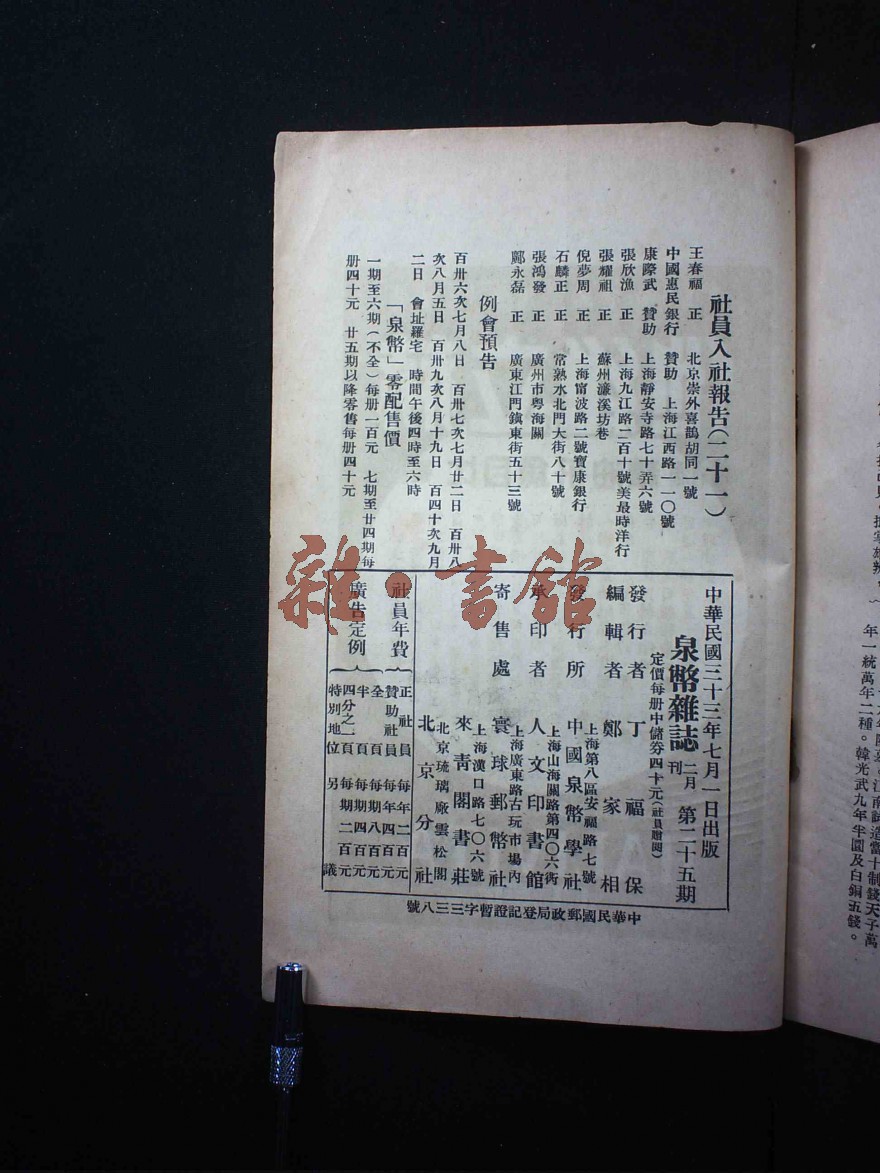 社員入社報告(二十一)
王春福 正 北京崇外喜鵲胡同一號
中國惠民銀行 贊助 上海江西路一一〇號
康際武 贊助 上海靜安寺路七十弄六號
張欣漁 正 上海九江路二百十號美最時洋行
張耀祖 正 蘇州濂溪坊巷
倪夢周 正 上海甯波路二號寶康銀行
石麟正 正 常熟水北門大街八十號
張鴻發 正 廣州市粵海關
鄺永磊 正 廣東江門鎮東街五十三號
例會預告
百卅六次七月八日 百卅七次七月廿二日 百卅八
次八月五日 百卅九次八月十九日 百四十次九月
二日 會址羅宅 時間午後四時至六時
「泉幣」零配售價
一期至六期(不全)每册一百元 七期至廿四期每
册四十元 廿五期以降零售每册四十元
中華民國三十三年七月一日出版
泉幣雜誌 二月刊 第二十五期
定價每册中儲券四十元(社員贈閱)
發行者 丁福保
編輯者 鄭家相
上海第八區安福路七號
發行所 中國泉幣學社
上海山海關路第四〇六街
承印者 人文印書館
上海廣東路古玩市場內
寄售處 寰球郵幣社
上海漢口路七〇六號
來青閣書莊
北京琉璃廠雲松閣
北京分社
社員年費
正社員 每年二百元
贊助社員 每年四百元
廣告定例
全頁 每期八百元
半頁 每期四百元
四分之一頁 每期二百元
特別地位 另議
中華民國郵政局登記證暫字三三八號
雜·書館
年一統萬年二種。韓光武九年半圜及白銅五錢。